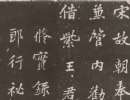 宋故朝奉
兼管内勸
借紫王君
將寶錄
郎行祕